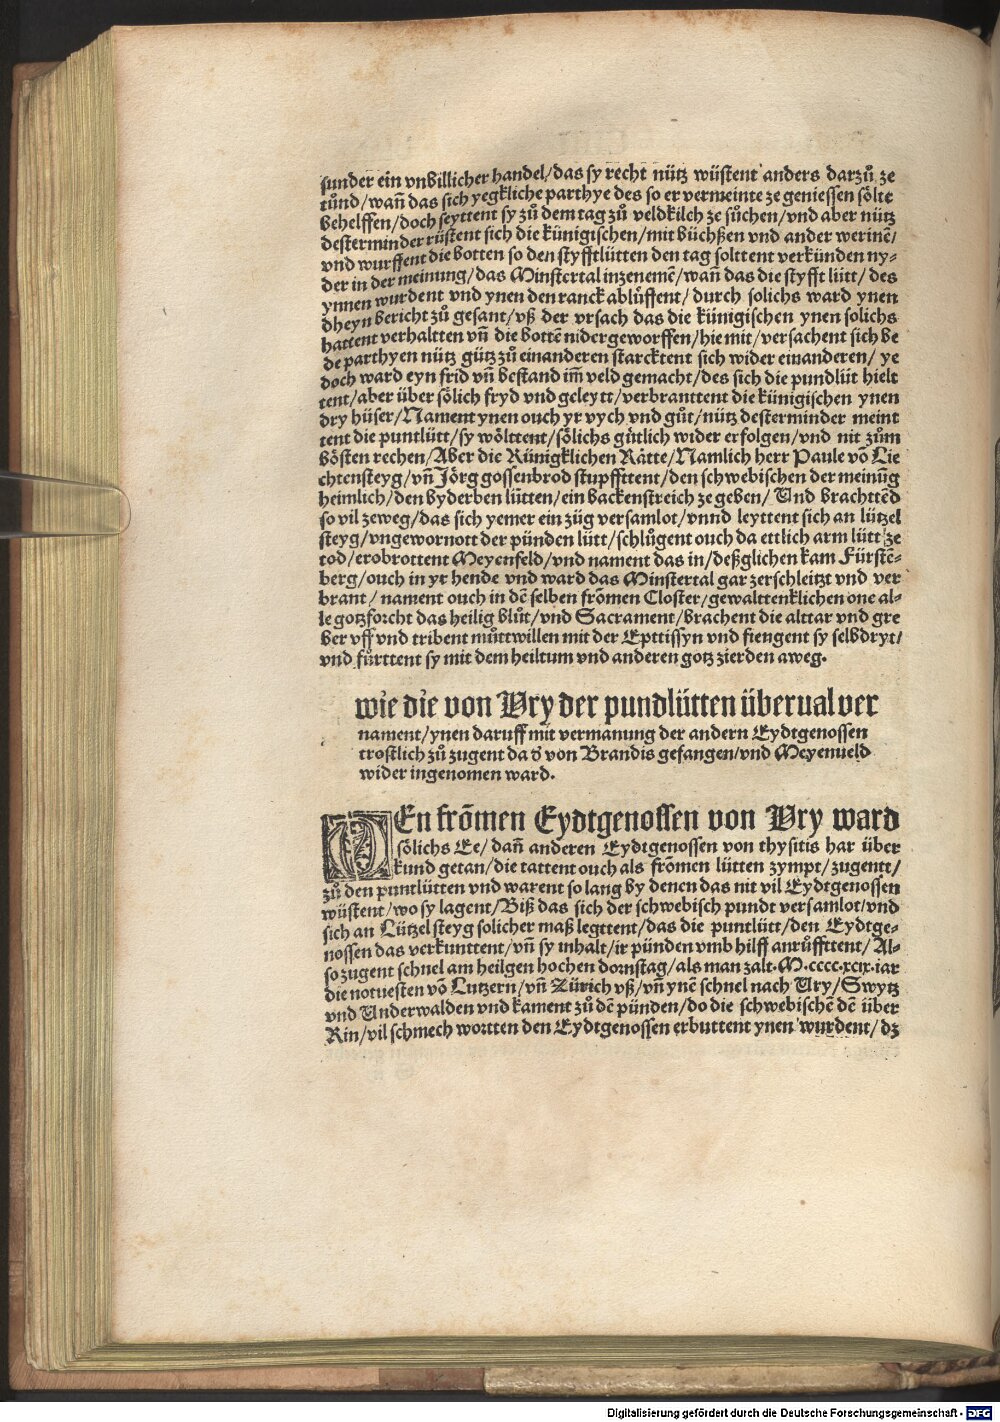 sunder ein vnbillicher handel/das sy recht nütz wüstent anders darzů ze
tůnd/wañ das sich yegkliche parthye des so er vermeinte ze geniessen sölte
behelffen/doch seyttent sy zů dem tag zů veldkilch ze sůchen/vnd aber nütz
destermin der rüstent sich die künigischen/mit büchßen vnd ander werinē/
vnd wurffent die botten so den styfftlütten den tag solttent verkünden ny-
der in der meinung/das Minstertal inzenemē/wañ das die styfft lütt/des
ynnen wurdent vnd ynen den ranck ablůffent/durch solichs ward ynen
dheyn bericht zů gesant/vß der vrsach das die künigischen ynen solichs
hattent verhaltten vñ die bottē nidergeworffen/hie mit/versachent sich be
de parthyen nütz gütz zů einanderen starcktent sich wider einanderen/ye
doch ward eyn frid vñ bestand im̄ veld gemacht/des sich die pundlüt hielt
tent/aber über sölich fryd vnd geleytt/verbranttent die künigischen ynen
dry hüser/Nament ynen ouch yr vych vnd gůt/nütz destermin der meint
tent die puntlütt/sy wölttent/sölichs gütlich wider erfolgen/vnd nit zům
bösten rechen/Aber die Künigklichen Rätte/Namlich herr Paule võ Lie
chtensteyg/vñ Jörg gossenbrod stupffttent/den schwebischen der meinūg
heimlich/den byderben lütten/ein backenstreich ze geben/Vnd brachttēd
so vil zeweg/das sich yemer ein züg versamlot/vnnd leyttent sich an lützel
steyg/vngewornott der pünden lütt/schlůgent ouch da ettlich arm lütt ze
tod/erobrottent Meyenfeld/vnd nament das in/deßglichen kam Fürstē-
berg/ouch in yr hende vnd ward das Minstertal gar zerschleitzt vnd ver
brant/nament ouch in dē selben frõmen Closter/gewalttenklichen one al-
le gotzforcht das heilig blůt/vnd Sacrament/brachent die alttar vnd gre
ber vff vnd tribent můttwillen mit der Epttissyn vnd fiengent sy selbdryt/
vnd fürttent sy mit dem heiltum vnd anderen gotz zierden aweg.
wie die von Vry der pundlütten überual ver
nament/ynen daruff mit vermanung der andern Eydtgenossen
trostlich zů zugent da d̄ von Brandis gefangen/vnd Meyenueld
wider ingenomen ward.
DEn frõmen Eydtgenossen von Vry ward
sölichs Ee/dañ anderen Eydtgenossen von thysitis har über
kund getan/die tattent ouch als frõmen lütten zympt/zugentt/
zů den puntlütten vnd warent so lang by denen das nit vil Eydtgenossen
wüstent/wo sy lagent/Biß das sich der schwebisch pundt versamlot/vnd
sich an Lützel steyg solicher maß legttent/das die puntlütt/den Eydtge-
nossen das verkunttent/vñ sy inhalt/ir pünden vmb hilff anrůffttent/Al-
so zugent schnel am heilgen hochen dornstag/als man zalt.M.cccc.xcix.iar
die notuesten võ Lutzern/vñ Zürich vß/vñ ynē schnel nach Vry/Swytz
vnd Vnderwalden vnd kament zů dē pünden/do die schwebischē dē über
Rin/vil schmech wortten den Eydtgenossen erbuttent ynen wurdent/dz
Digitalisierung gefördert durch die Deutsche Forschungsgemeinschaft - DFG